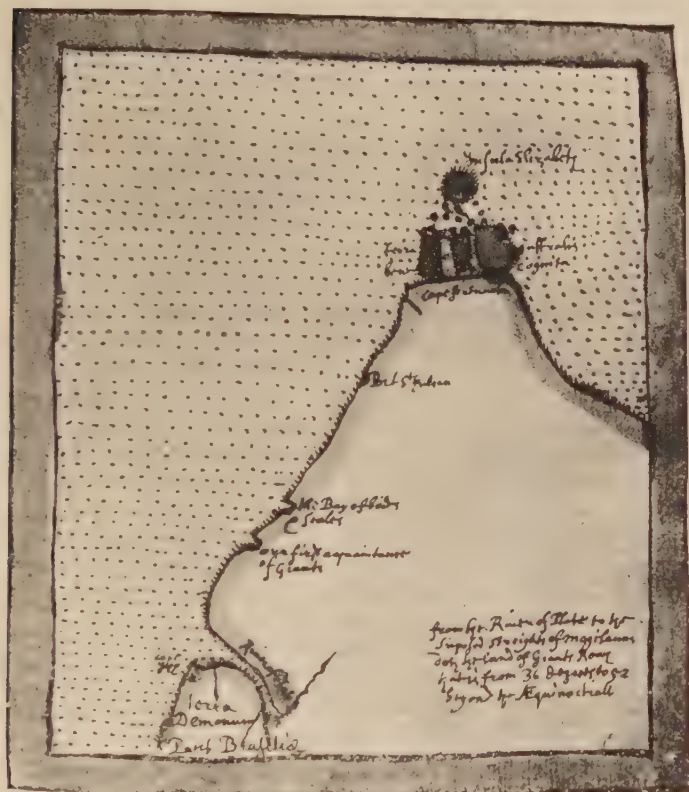 Insula Elizabeth
Terra
australis
bene
cognita
Port St Julian
The Bay of
Seales
our first aquaintance
of Giants
from the River of Plate to the
suposed streights of Magilanas
doth the land of Giants Reach
that is from 36 degrees to 52
beyond the Æquinoctiall
River of Plate
Cape
Terra
Demonum
Parts Brasilia